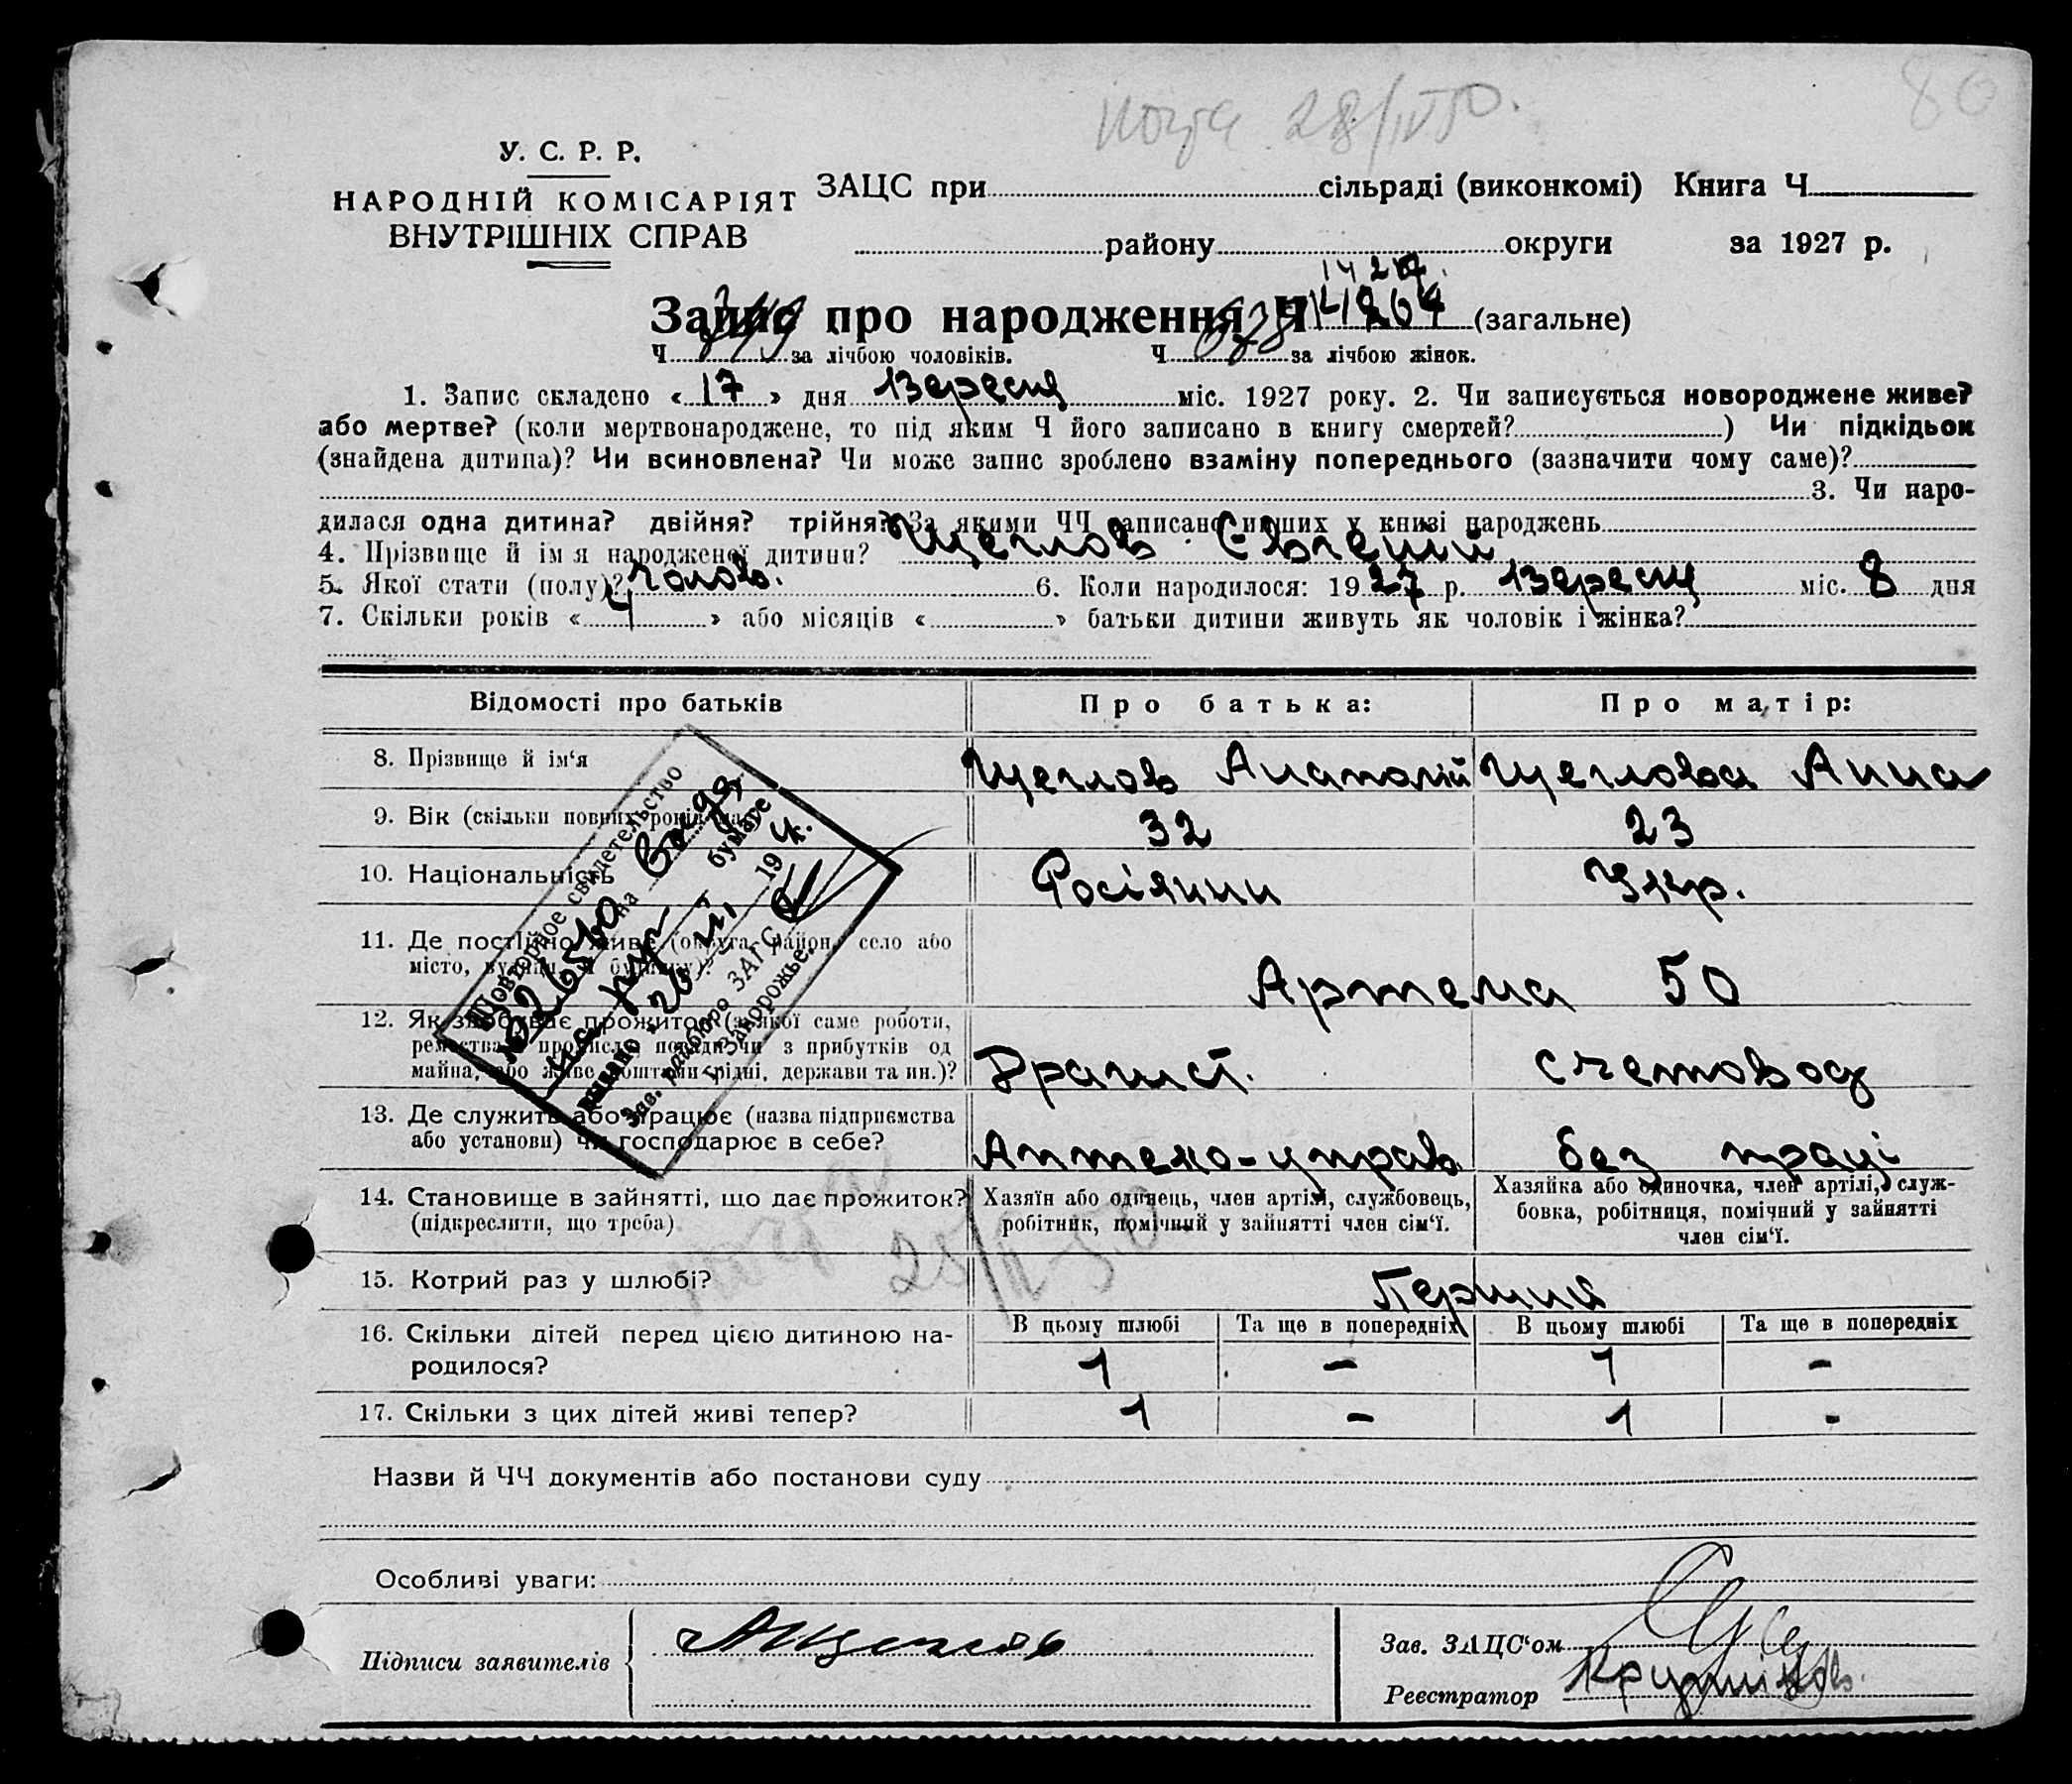 Копія 28/IV 50.
80
У. С. Р. Р.
НАРОДНІЙ КОМІСАРІЯТ
ВНУТРІШНІХ СПРАВ
ЗАЦС при сільраді (виконкомі) Книга Ч
району округи за 1927 р.
Запис про народження Ч (загальне)
Ч 749 за лічбою чоловіків. Ч 678 за лічбою жінок.
1. Запис складено « 17 » дня Вересня міс. 1927 року. 2. Чи записується новороджене живе?
або мертве? (коли мертвонароджене, то під яким Ч його записано в книгу смертей? ) Чи підкідьок
(знайдена дитина)? Чи всиновлена? Чи може запис зроблено взаміну попереднього (зазначити чому саме)?
3. Чи наро-
дилася одна дитина? двійня? трійня? За якими ЧЧ записано инших у книзі народжень
4. Прізвище й ім я народженої дитини? Щеглов Євгеній
5. Якої стати (полу)? Чолов. 6. Коли народилося: 1927 р. Вересня міс. 8 дня
7. Скільки років « 4 » або місяців « » батьки дитини живуть як чоловік і жінка?
Відомості про батьків Про батька: Про матір:
8. Прізвище й ім'я Щеглов Анатолій Щеглова Анна
9. Вік (скільки повних років має) 32 23
10. Національність Росіянин Укр.
11. Де постійно живе (округа, район, село або
місто, вулиця, Ч будинку)? Артема 50
12. Як здобуває прожиток (з якої саме роботи,
ремества, промисла, посади чи з прибутків од
майна, або живе коштами рідні, держави та ин.)? счетовод
13. Де служить або працює (назва підприємства
або установи) чи господарює в себе? Аптеко-управ. без праці
14. Становище в зайнятті, що дає прожиток?
(підкреслити, що треба)
Хазяїн або одинець, член артілі, службовець,
робітник, помічний у зайнятті член сім'ї.
Хазяйка або одиночка, член артілі, служ-
бовка, робітниця, помічний у зайнятті
член сім'ї.
15. Котрий раз у шлюбі? Перший
16. Скільки дітей перед цією дитиною на-
родилося?
В цьому шлюбі Та ще в попередніх В цьому шлюбі Та ще в попередніх
1 - 1 -
17. Скільки з цих дітей живі тепер? 1 - 1 -
Повторное свидетельство
на бумаге
19
Зав. райбюро ЗАГС
г. Запорожье
Назви й ЧЧ документів або постанови суду
Особливі уваги:
Підписи заявителів АЩеглов
Зав. ЗАЦС'ом
Реєстратор